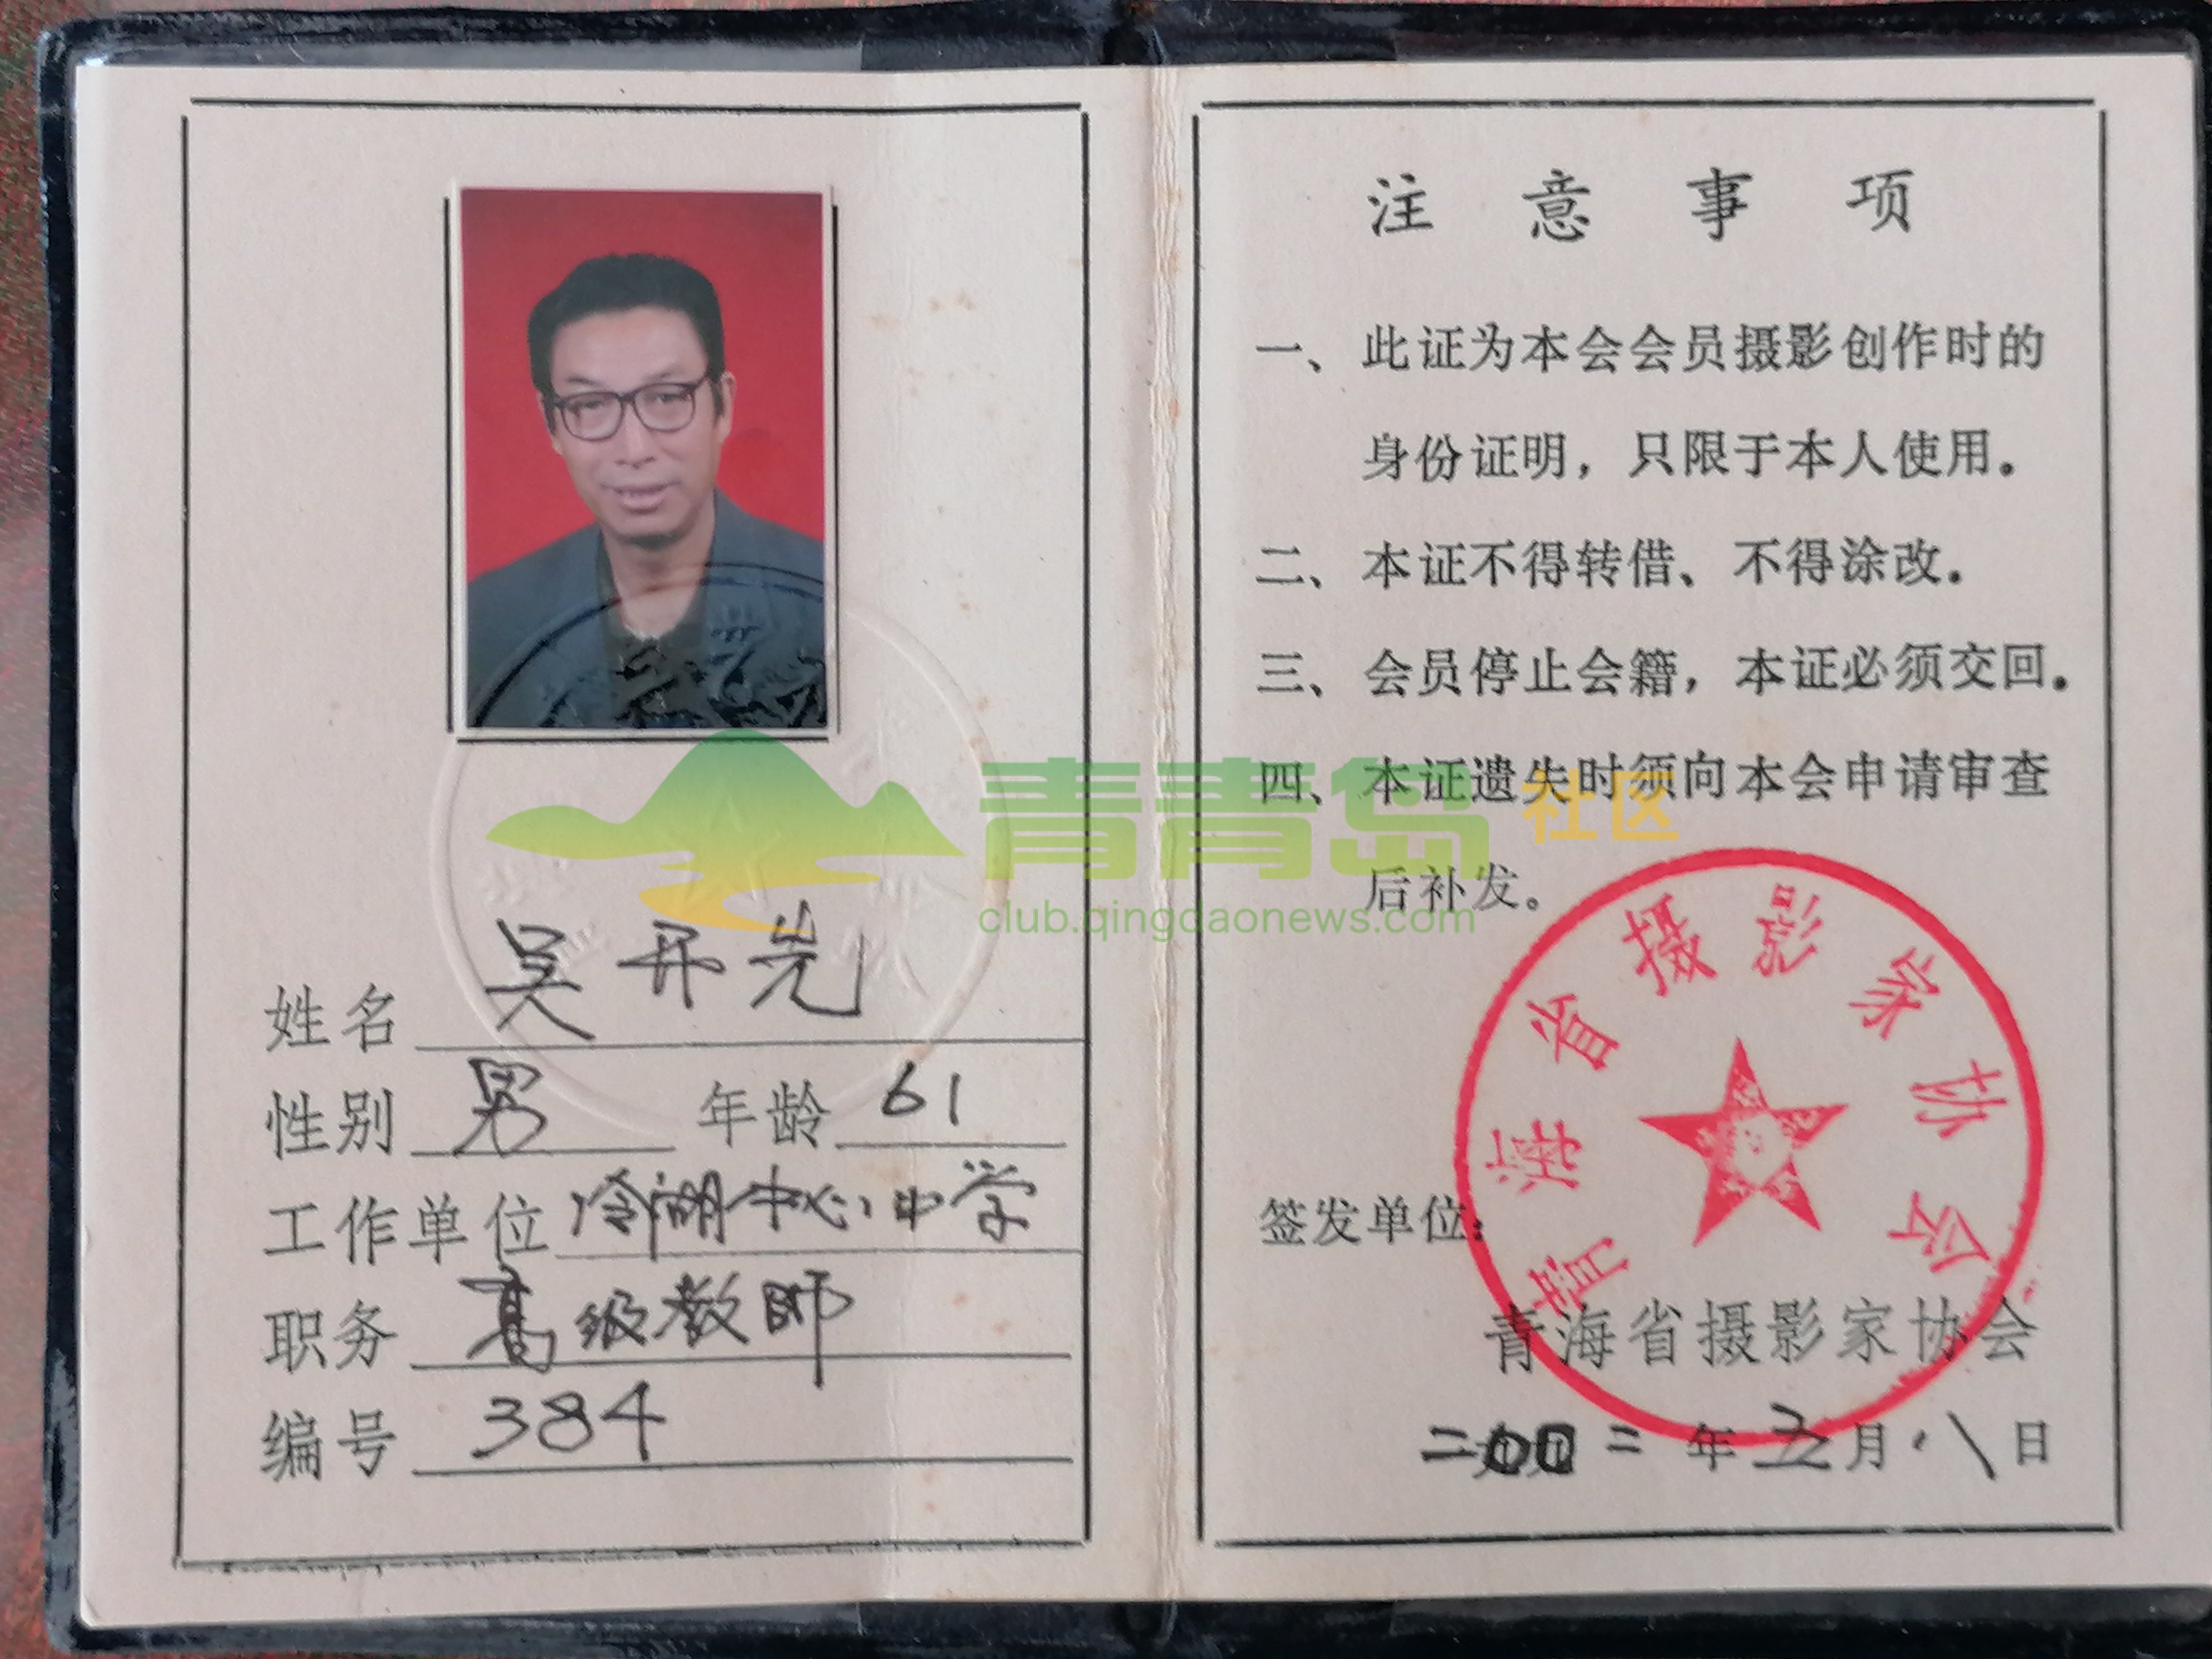 姓名 吴开岚
性别 男 年龄 61
工作单位 冷湖中心中学
职务 高级教师
编号 384
注意事项
一、此证为本会会员摄影创作时的
身份证明，只限于本人使用。
二、本证不得转借、不得涂改。
三、会员停止会籍，本证必须交回。
四、本证遗失时须向本会申请审查
后补发。
青海省摄影家协会
签发单位：
青海省摄影家协会
二〇〇二年五月八日
青青岛社区
club.qingdaonews.com